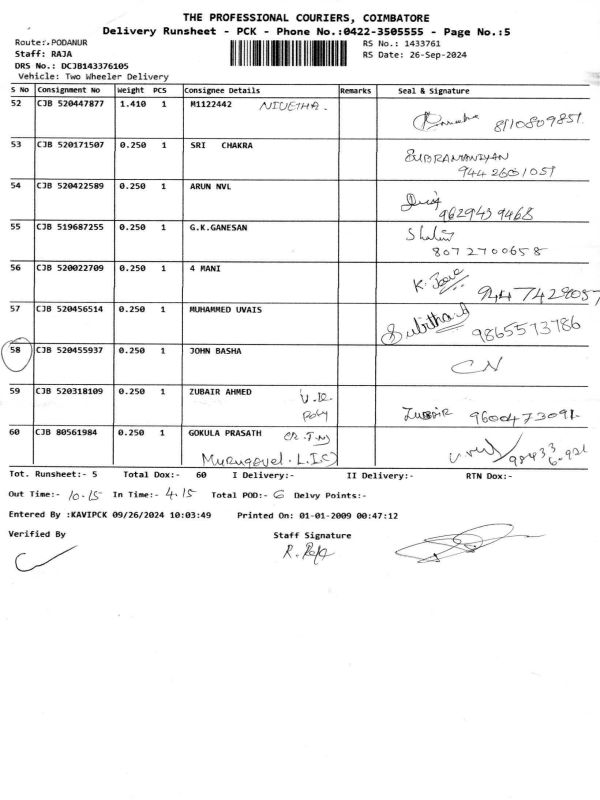 THE PROFESSIONAL COURIERS, COIMBATORE
Delivery Runsheet - PCK - Phone No.:0422-3505555 - Page No.:5
Route:.PODANUR RS No.: 1433761
Staff: RAJA RS Date: 26-Sep-2024
DRS No.: DCJB143376105
Vehicle: Two Wheeler Delivery
S No Consignment No Weight PCS Consignee Details Remarks Seal & Signature
52 CJB 520447877 1.410 1 M1122442 NIVETHA.
8110809851.
53 CJB 520171507 0.250 1 SRI CHAKRA SUBRAMANIYAN
9442601051
54 CJB 520422589 0.250 1 ARUN NVL
9629459468
55 CJB 519687255 0.250 1 G.K.GANESAN
8072700658
56 CJB 520022709 0.250 1 4 MANI
9447428057
57 CJB 520456514 0.250 1 MUHAMMED UVAIS
Subitha 9865573786
58 CJB 520455937 0.250 1 JOHN BASHA
CN
59 CJB 520318109 0.250 1 ZUBAIR AHMED
ZUBAIR 9600473091.
60 CJB 80561984 0.250 1 GOKULA PRASATH
Murugavel. L.I.C)
Tot. Runsheet:- 5 Total Dox:- 60 I Delivery:- II Delivery:- RTN Dox:-
Out Time:- 10.15 In Time:- 4.15 Total POD:- 6 Delvy Points:-
Entered By :KAVIPCK 09/26/2024 10:03:49 Printed On: 01-01-2009 00:47:12
Verified By Staff Signature
R. Raja